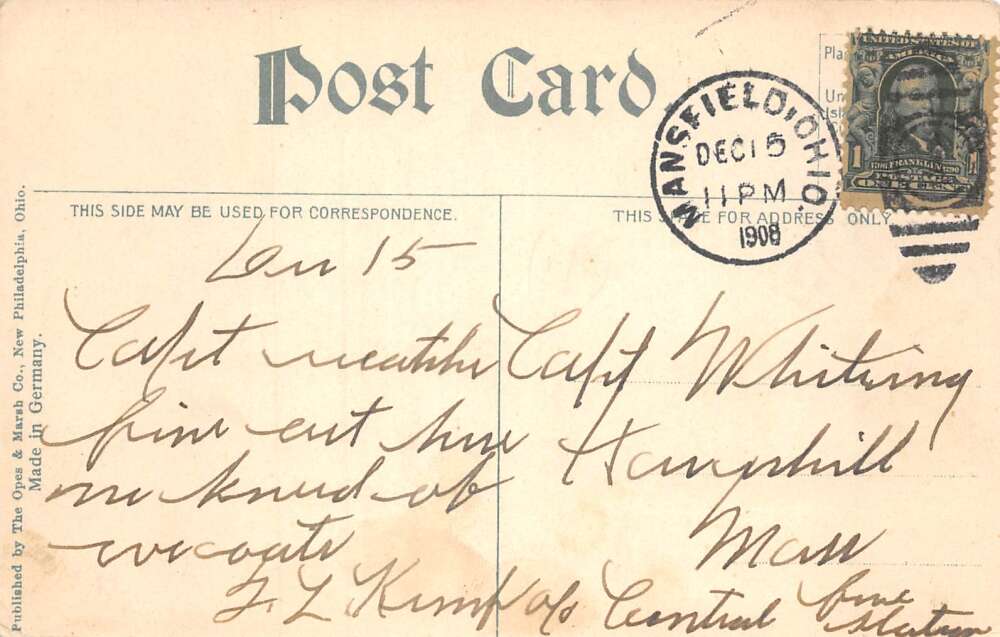 Post Card
MANSFIELD, OHIO.
DEC 15
11 PM
1908
UNITED STATES OF
AMERICA
1
FRANKLIN
1
POSTAGE
ONE CENT
Pla
Un
Isl
THIS SIDE MAY BE USED FOR CORRESPONDENCE.
THIS FOR ADDRESS ONLY
Published by The Opes & Marsh Co., New Philadelphia, Ohio.
Made in Germany.
Dec 15
Capt weather
fine out here
no kneed of
overcoats
F. L. Kemp c/o Central fire
station
Capt Whiting
Haverhill
Mass